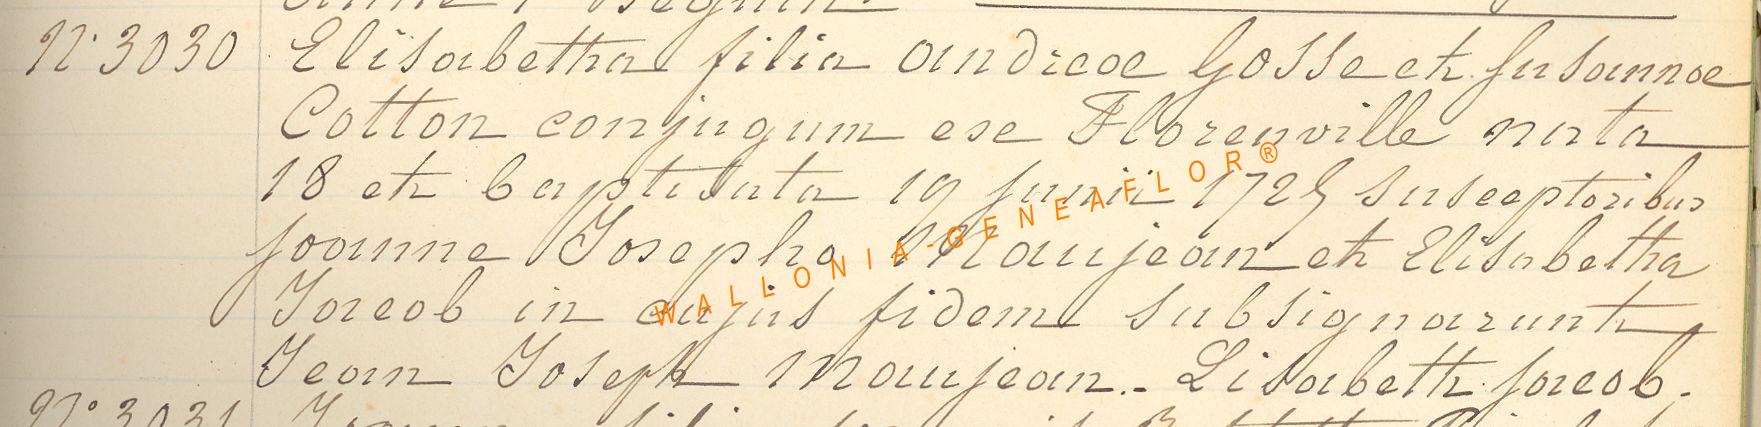 N° 3030 Elisabetha filia andreae Gosse et Susannae
Cotton conjugum exe Florenville nata
18 et baptisata 19 Junii 1725 susceptoribus
Joanne Josepho Maujean et Elisabetha
Jacob in cujus fidem subsignarunt
Jean Joseph Maujean. - Lisabeth Jacob.
N° 3031
WALLONIA-GENEAFLOR®